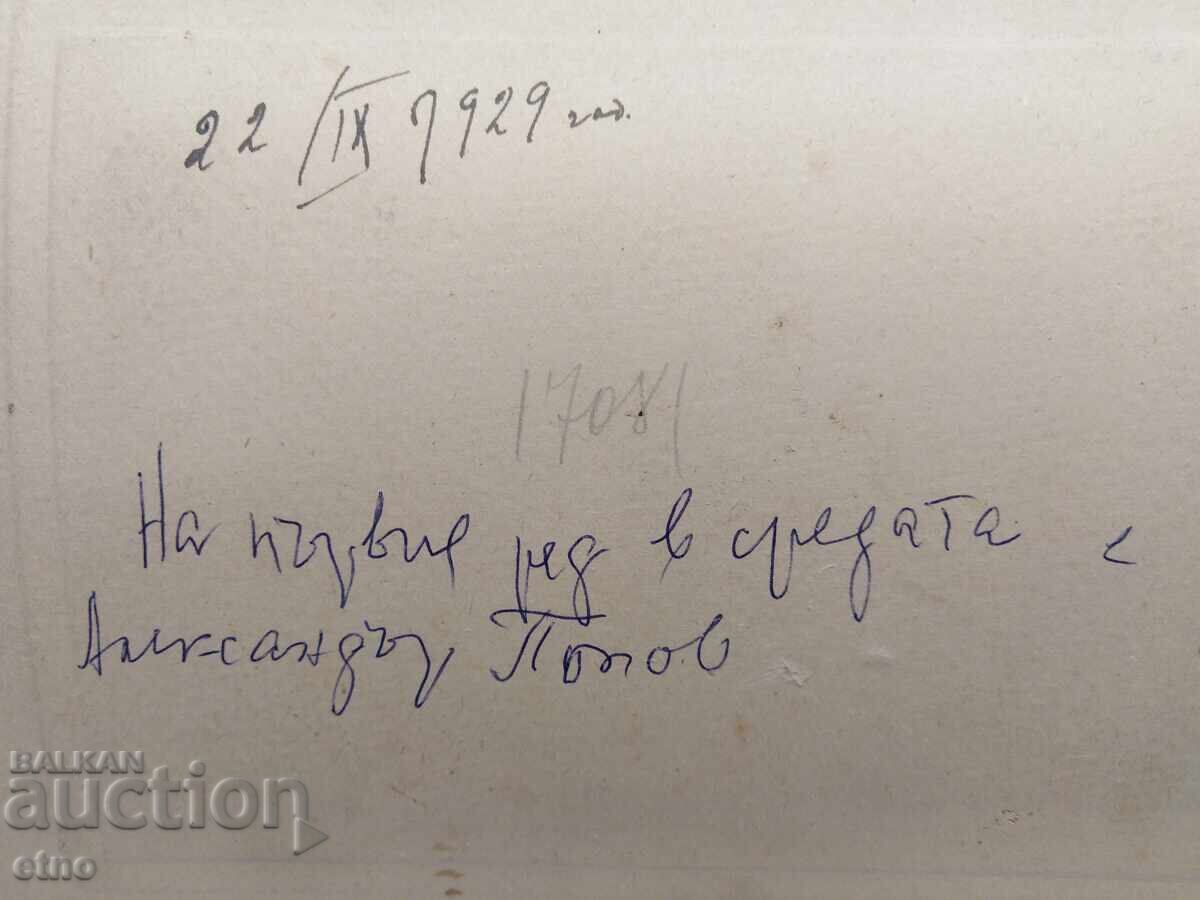 22 /IX 1929 год.
17081
На първия ред в средата е
Александър Попов
BALKAN
auction
etno